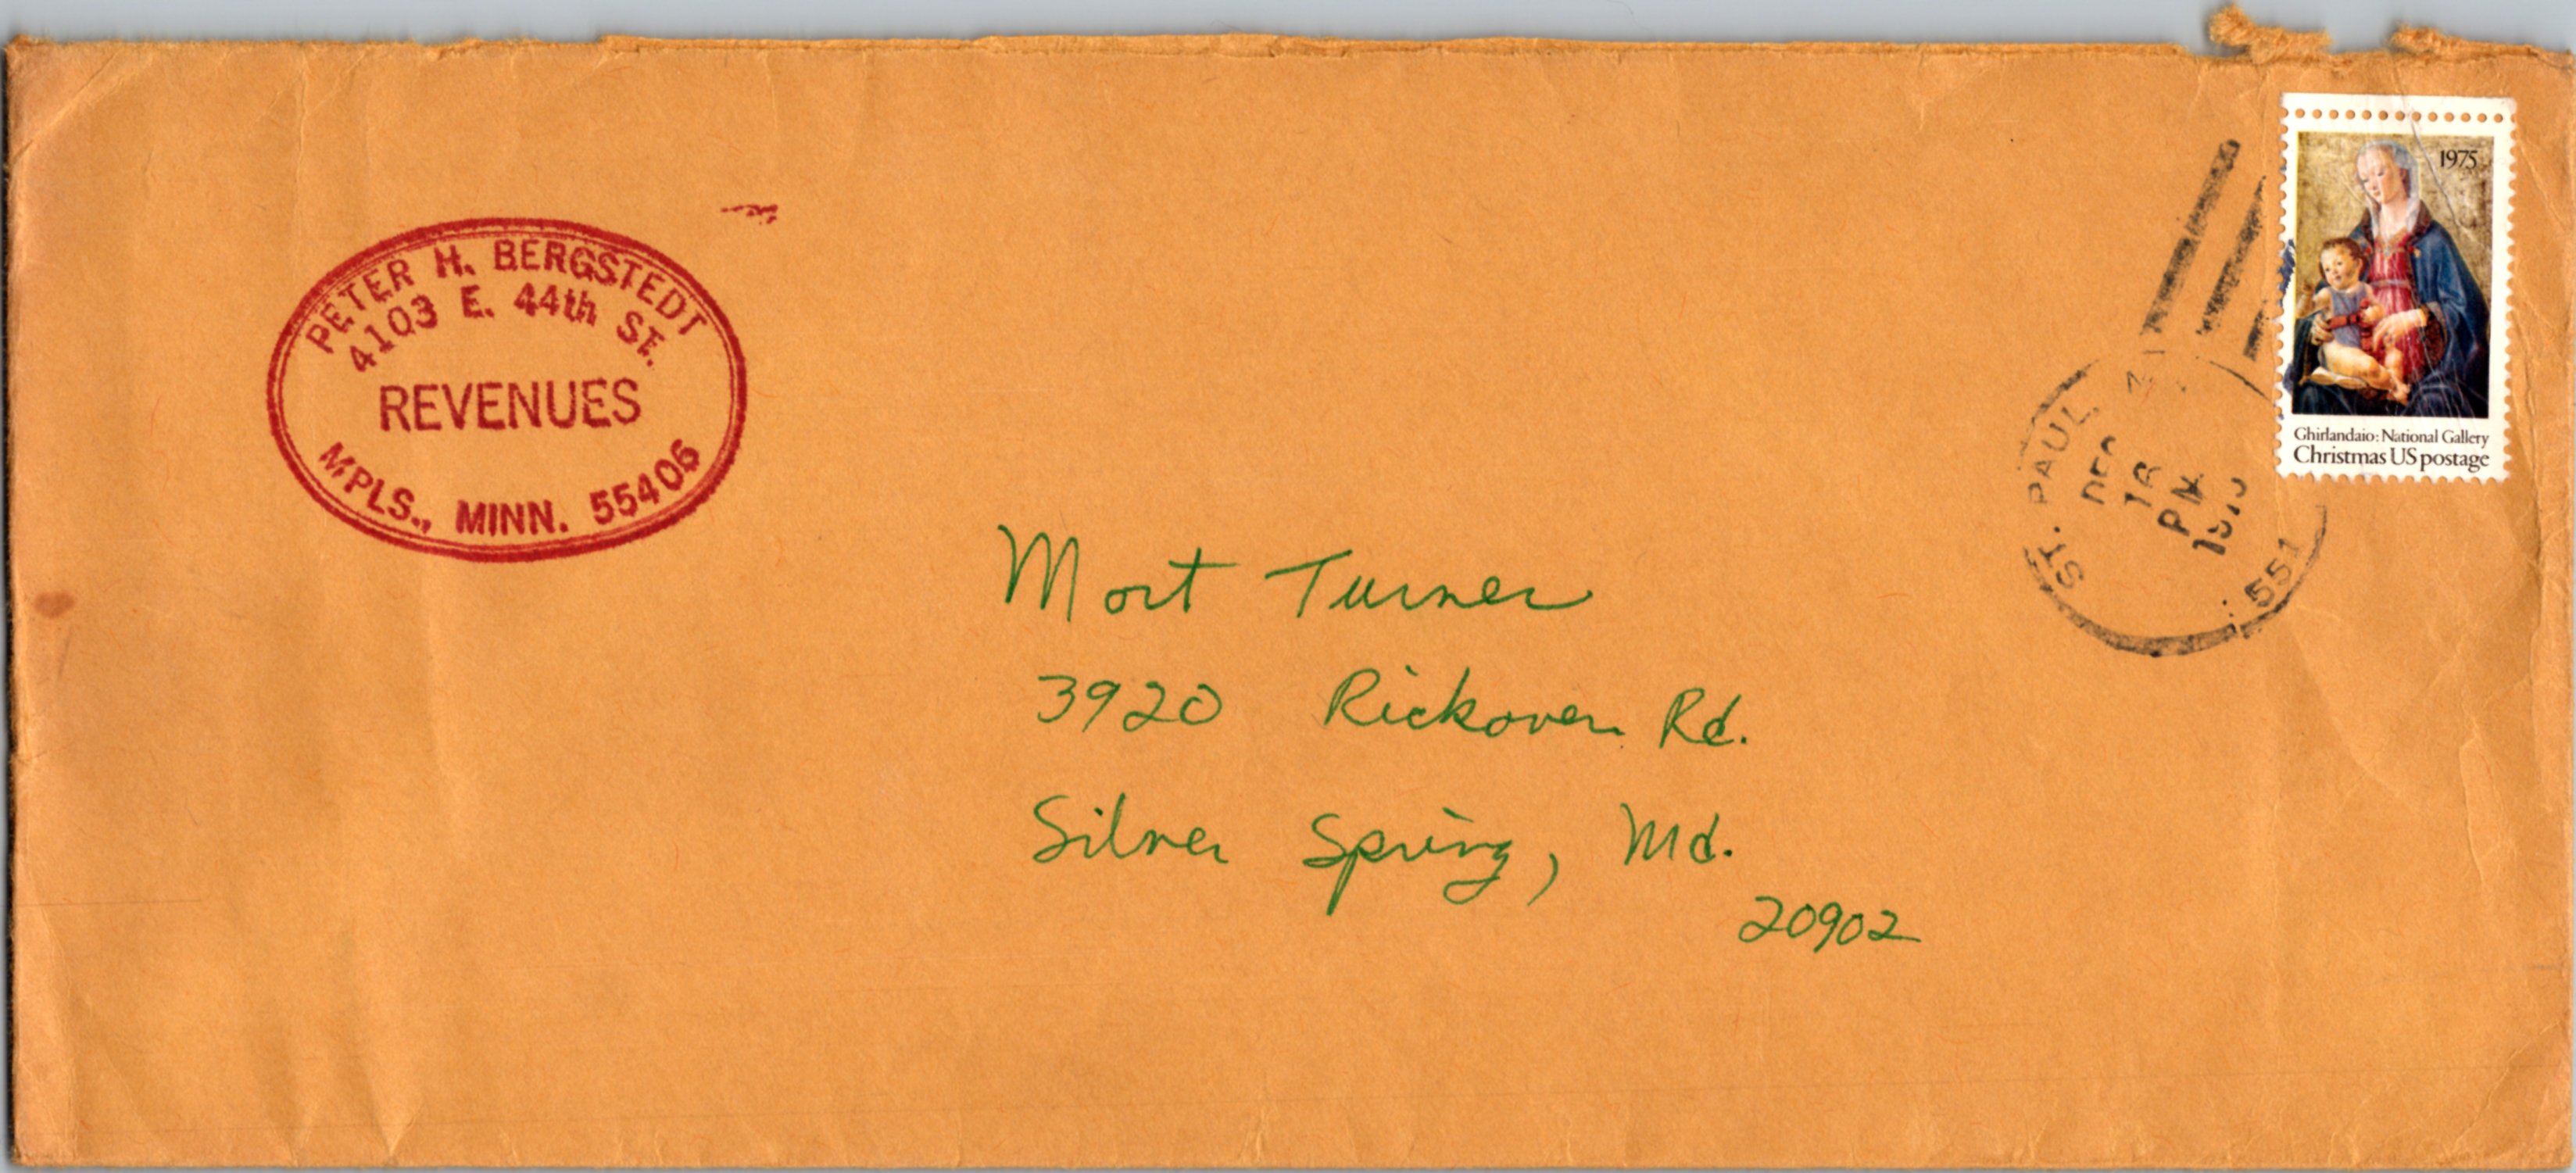 PETER H. BERGSTEDT
4103 E. 44th ST.
REVENUES
MPLS., MINN. 55406
1975
Ghirlandaio: National Gallery
Christmas US postage
ST. PAUL,
DEC
16
PM
551
Mort Turner
3920 Rickover Rd.
Silver Spring, Md.
20902